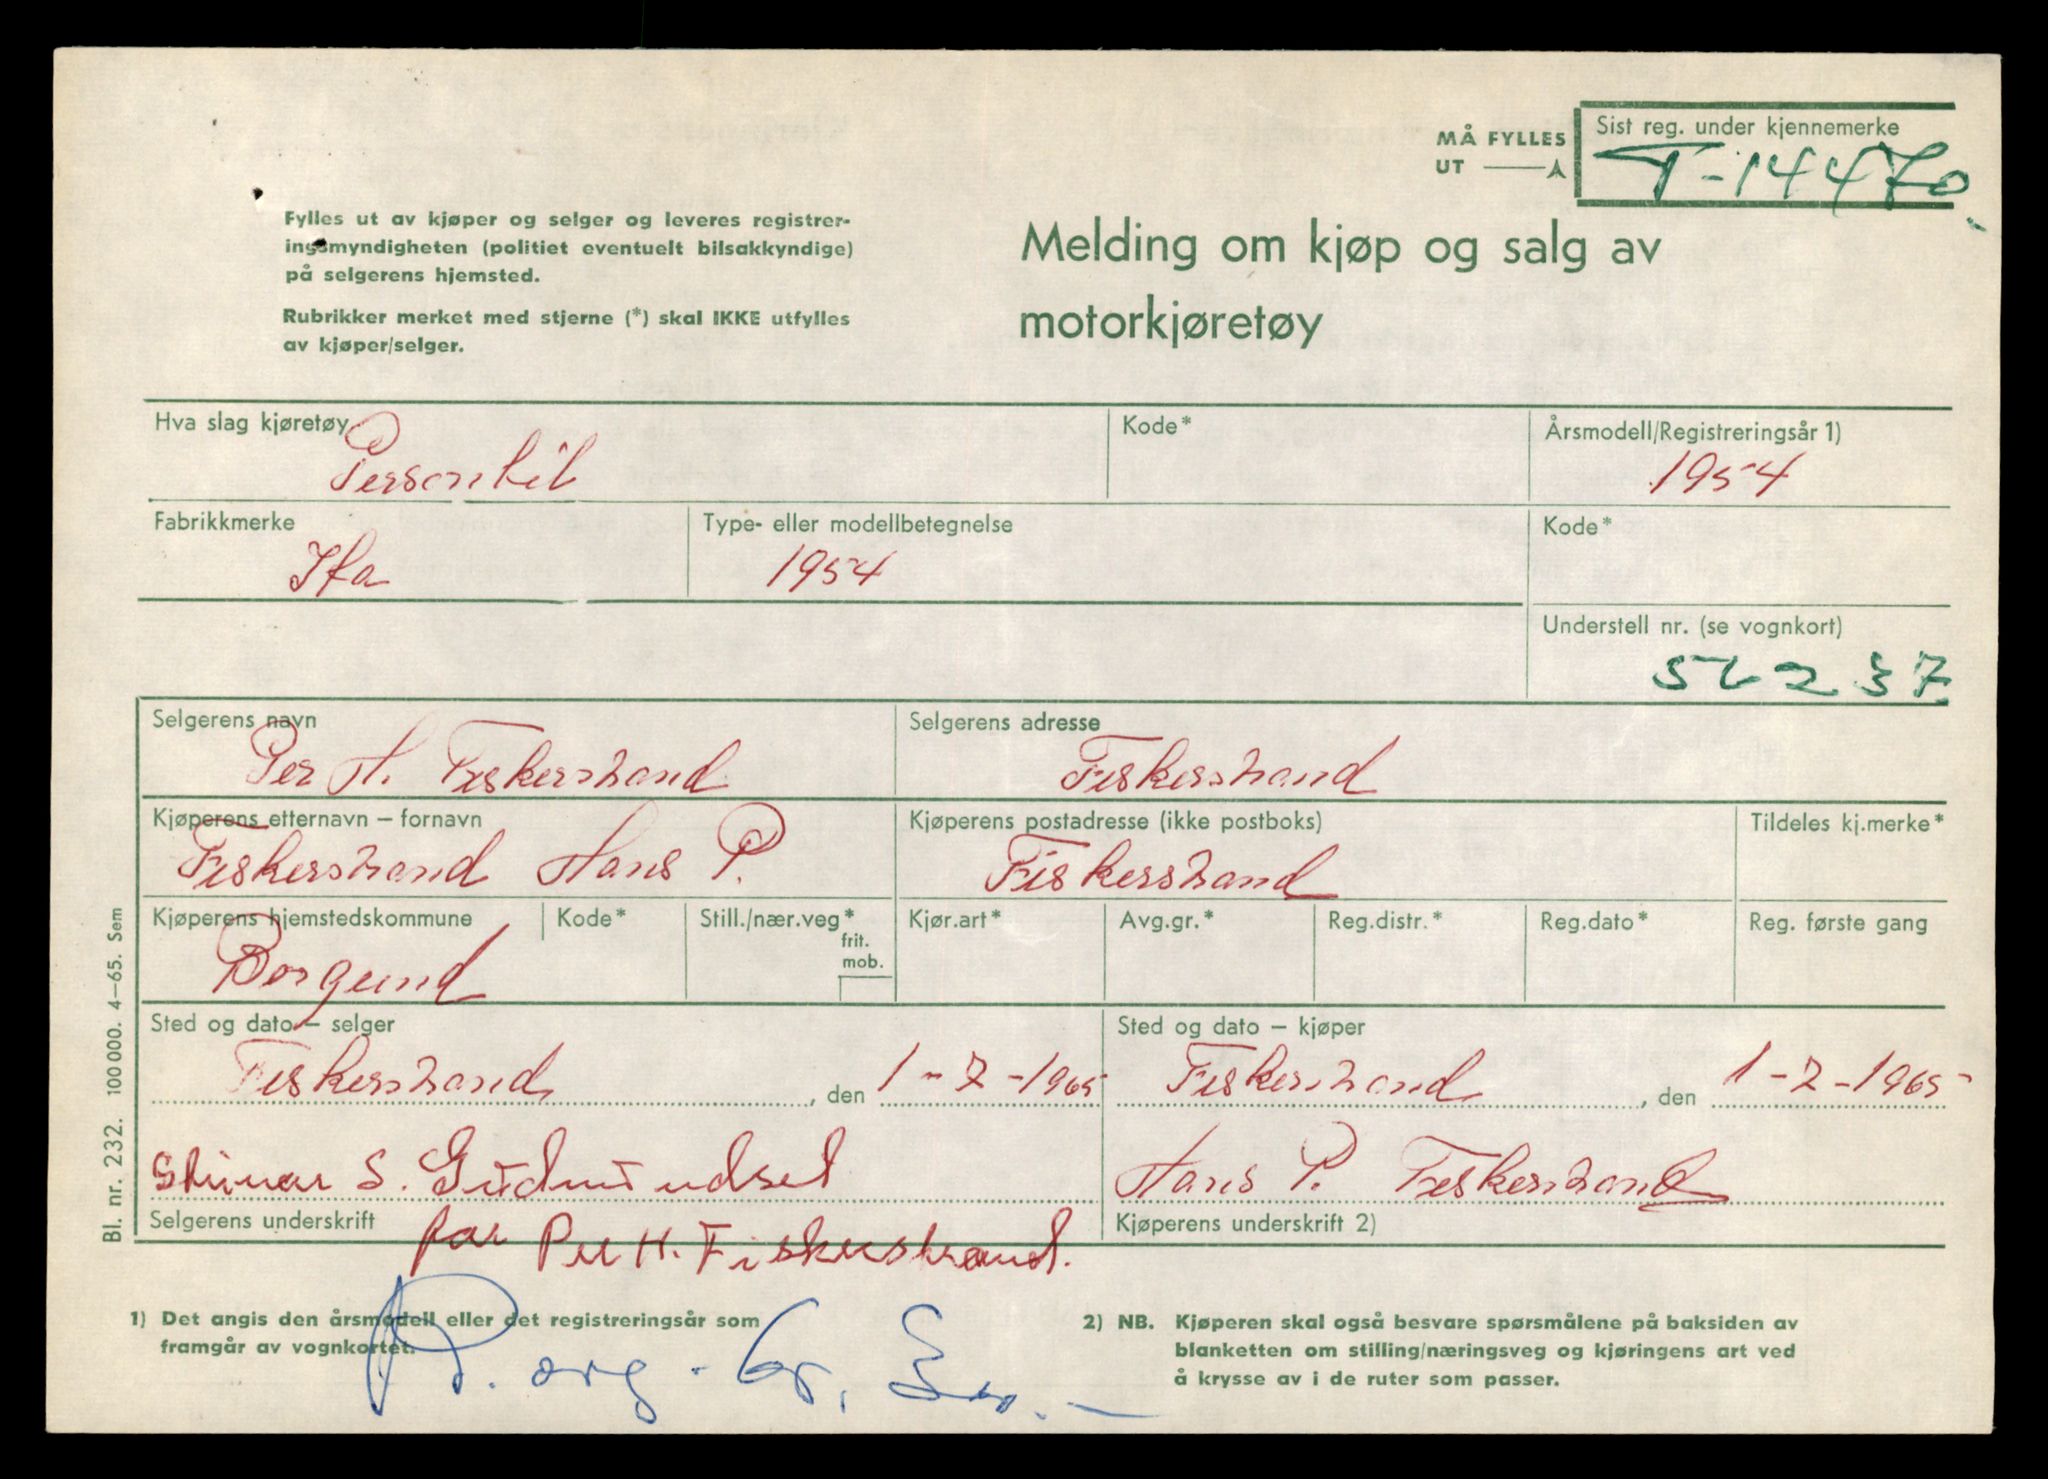 MÅ FYLLES
UT
Sist reg. under kjennemerke
T-14470
Fylles ut av kjøper og selger og leveres registrer-
ingsmyndigheten (politiet eventuelt bilsakkyndige)
på selgerens hjemsted.
Rubrikker merket med stjerne (*) skal IKKE utfylles
av kjøper/selger.
Melding om kjøp og salg av
motorkjøretøy
Hva slag kjøretøy
Personbil
Kode*
Årsmodell/Registreringsår 1)
1954
Fabrikkmerke
Ifa
Type- eller modellbetegnelse
1954
Kode*
Understell nr. (se vognkort)
Selgerens navn
Per H. Fiskerstrand
Selgerens adresse
Fiskerstrand
Kjøperens etternavn – fornavn
Fiskerstrand Hans P.
Kjøperens postadresse (ikke postboks)
Fiskerstrand
Tildeles kj.merke*
Kjøperens hjemstedskommune
Borgund
Kode*
Still./nær.veg*
frit.
mob.
Kjør.art*
Avg.gr.*
Reg.distr.*
Reg.dato*
Reg. første gang
Sted og dato – selger
Fiskerstrand, den 1-7-1965
Sted og dato – kjøper
Fiskerstrand, den 1-7-1965
S. Gudmundset
Selgerens underskrift
for Per H. Fiskerstrand.
Hans P. Fiskerstrand
Kjøperens underskrift 2)
1) Det angis den årsmodell eller det registreringsår som
framgår av vognkortet.
2) NB. Kjøperen skal også besvare spørsmålene på baksiden av
blanketten om stilling/næringsveg og kjøringens art ved
å krysse av i de ruter som passer.
Bl. nr. 232. 100 000. 4–65. Sem